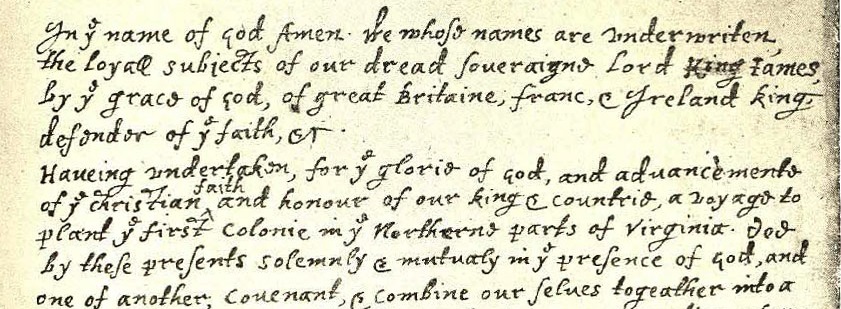 In yᵉ name of god Amen. We whose names are vnderwriten,
the loyall subjects of our dread soveraigne Lord King James,
by yᵉ grace of god, of great Britaine, franc, & Ireland king,
defender of yᵉ faith, &c.
Haveing vndertaken, for yᵉ glorie of god, and advancemente
of yᵉ christian ^faith and honour of our king & countrie, a voyage to
plant yᵉ first colonie in yᵉ Northerne parts of Virginia. doe
by these presents solemnly & mutualy in yᵉ presence of god, and
one of another, covenant, & combine our selves togeather into a